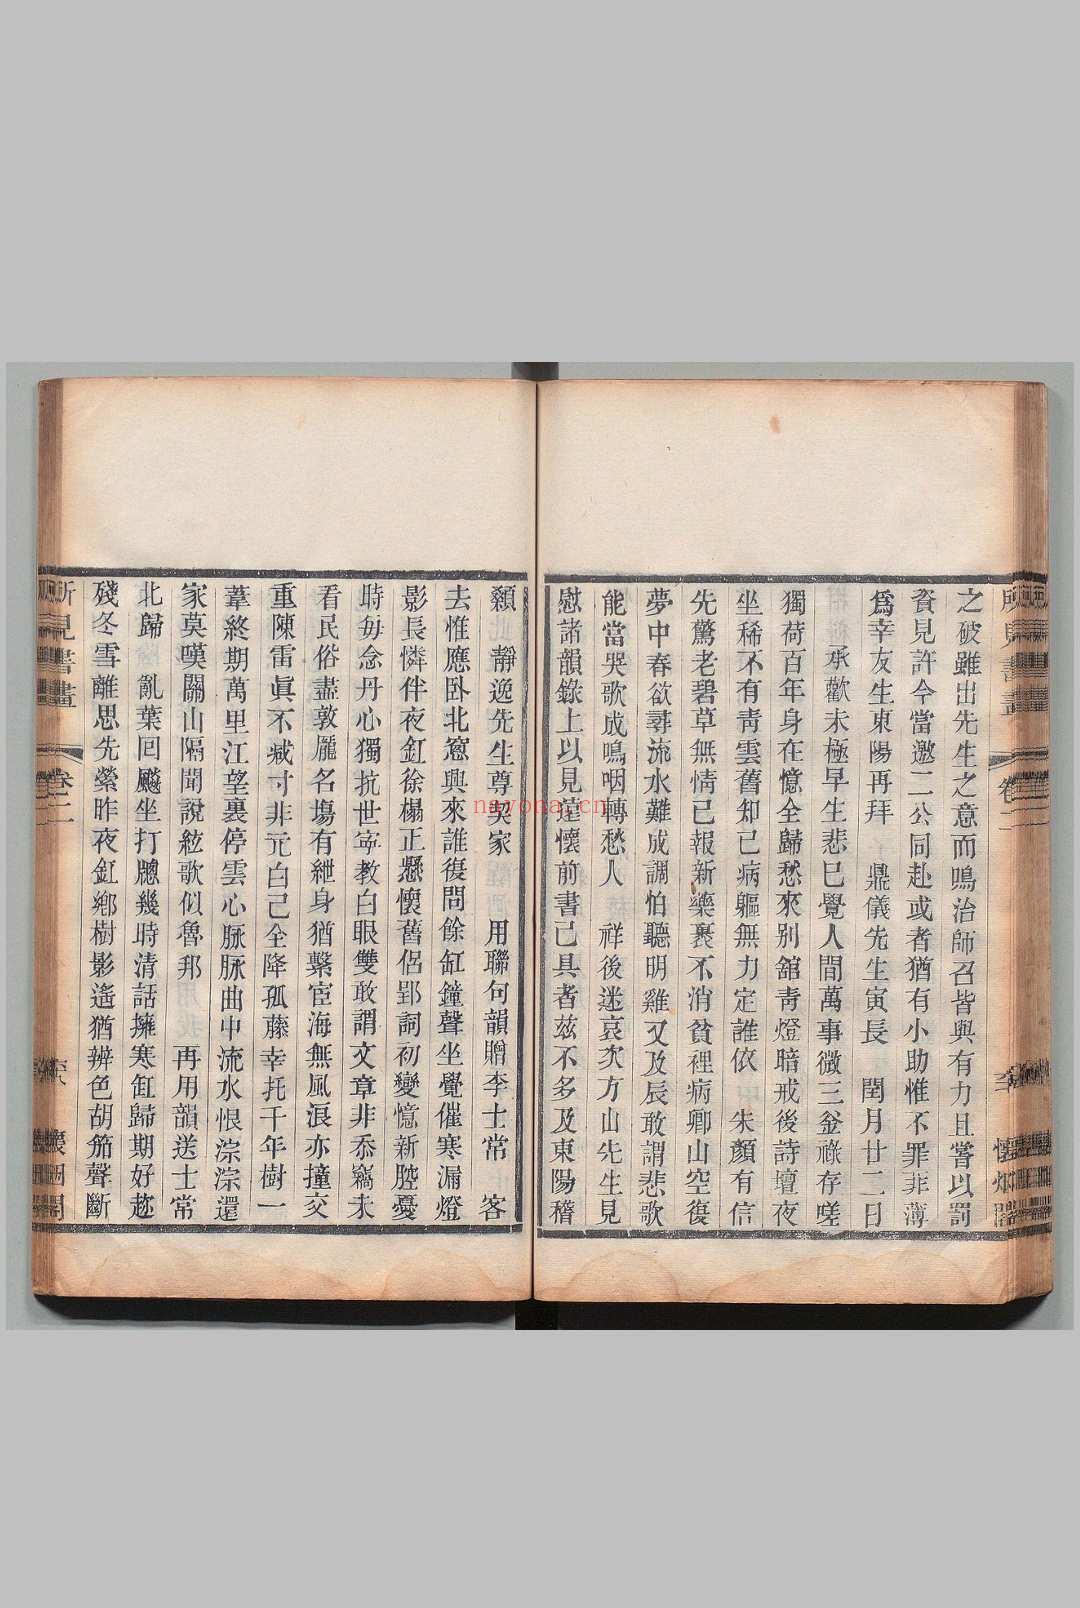 之破雖出先生之意而鳴治師召皆與有力且嘗以罰
賚見許今當邀二公同赴或者猶有小助惟不罪菲薄
爲幸友生東陽再拜 鼎儀先生寅長 閏月廿二日
承歡未極早生悲已覺人間萬事微三釡祿存嗟
獨荷百年身在憶全歸愁來别舘青燈暗戒後詩壇夜
坐稀不有靑雲舊知己病軀無力定誰依 朱顏有信
先驚老碧草無情已報新藥裹不消貧裡病卿山空復
夢中春欲尋流水難成調怕聽明雞又及辰敢謂悲歌
能當哭歌成鳴咽轉愁人 祥後迷哀次方山先生見
慰諸韻錄上以見達懷前書已具者兹不多及東陽稽
顙 靜逸先生尊契家 用聯句韻贈李士常 客
去惟應卧北窻興來誰復問餘缸鐘聲坐覺催寒漏燈
影長憐伴夜釭徐榻正懸懷舊侶郢詞初變憶新腔憂
時毎念丹心獨抗世寧教白眼雙敢謂文章非忝竊未
看民俗盡敦厖名塲有紲身猶繫宦海無風浪亦撞交
重陳雷眞不減寸非元白己全降孤藤幸托千年樹一
葦終期萬里江望裏停雲心脉脉曲中流水恨淙淙還
家莫嘆關山隔聞說絃歌似魯邦 再用韻送士常
北歸 亂葉回飇坐打牕幾時清話擁寒缸歸期好趂
殘冬雪離思先縈昨夜釭鄕樹影遙猶辨色胡笳聲斷
所見書畫 卷二
懷烟閣
nayona.cn